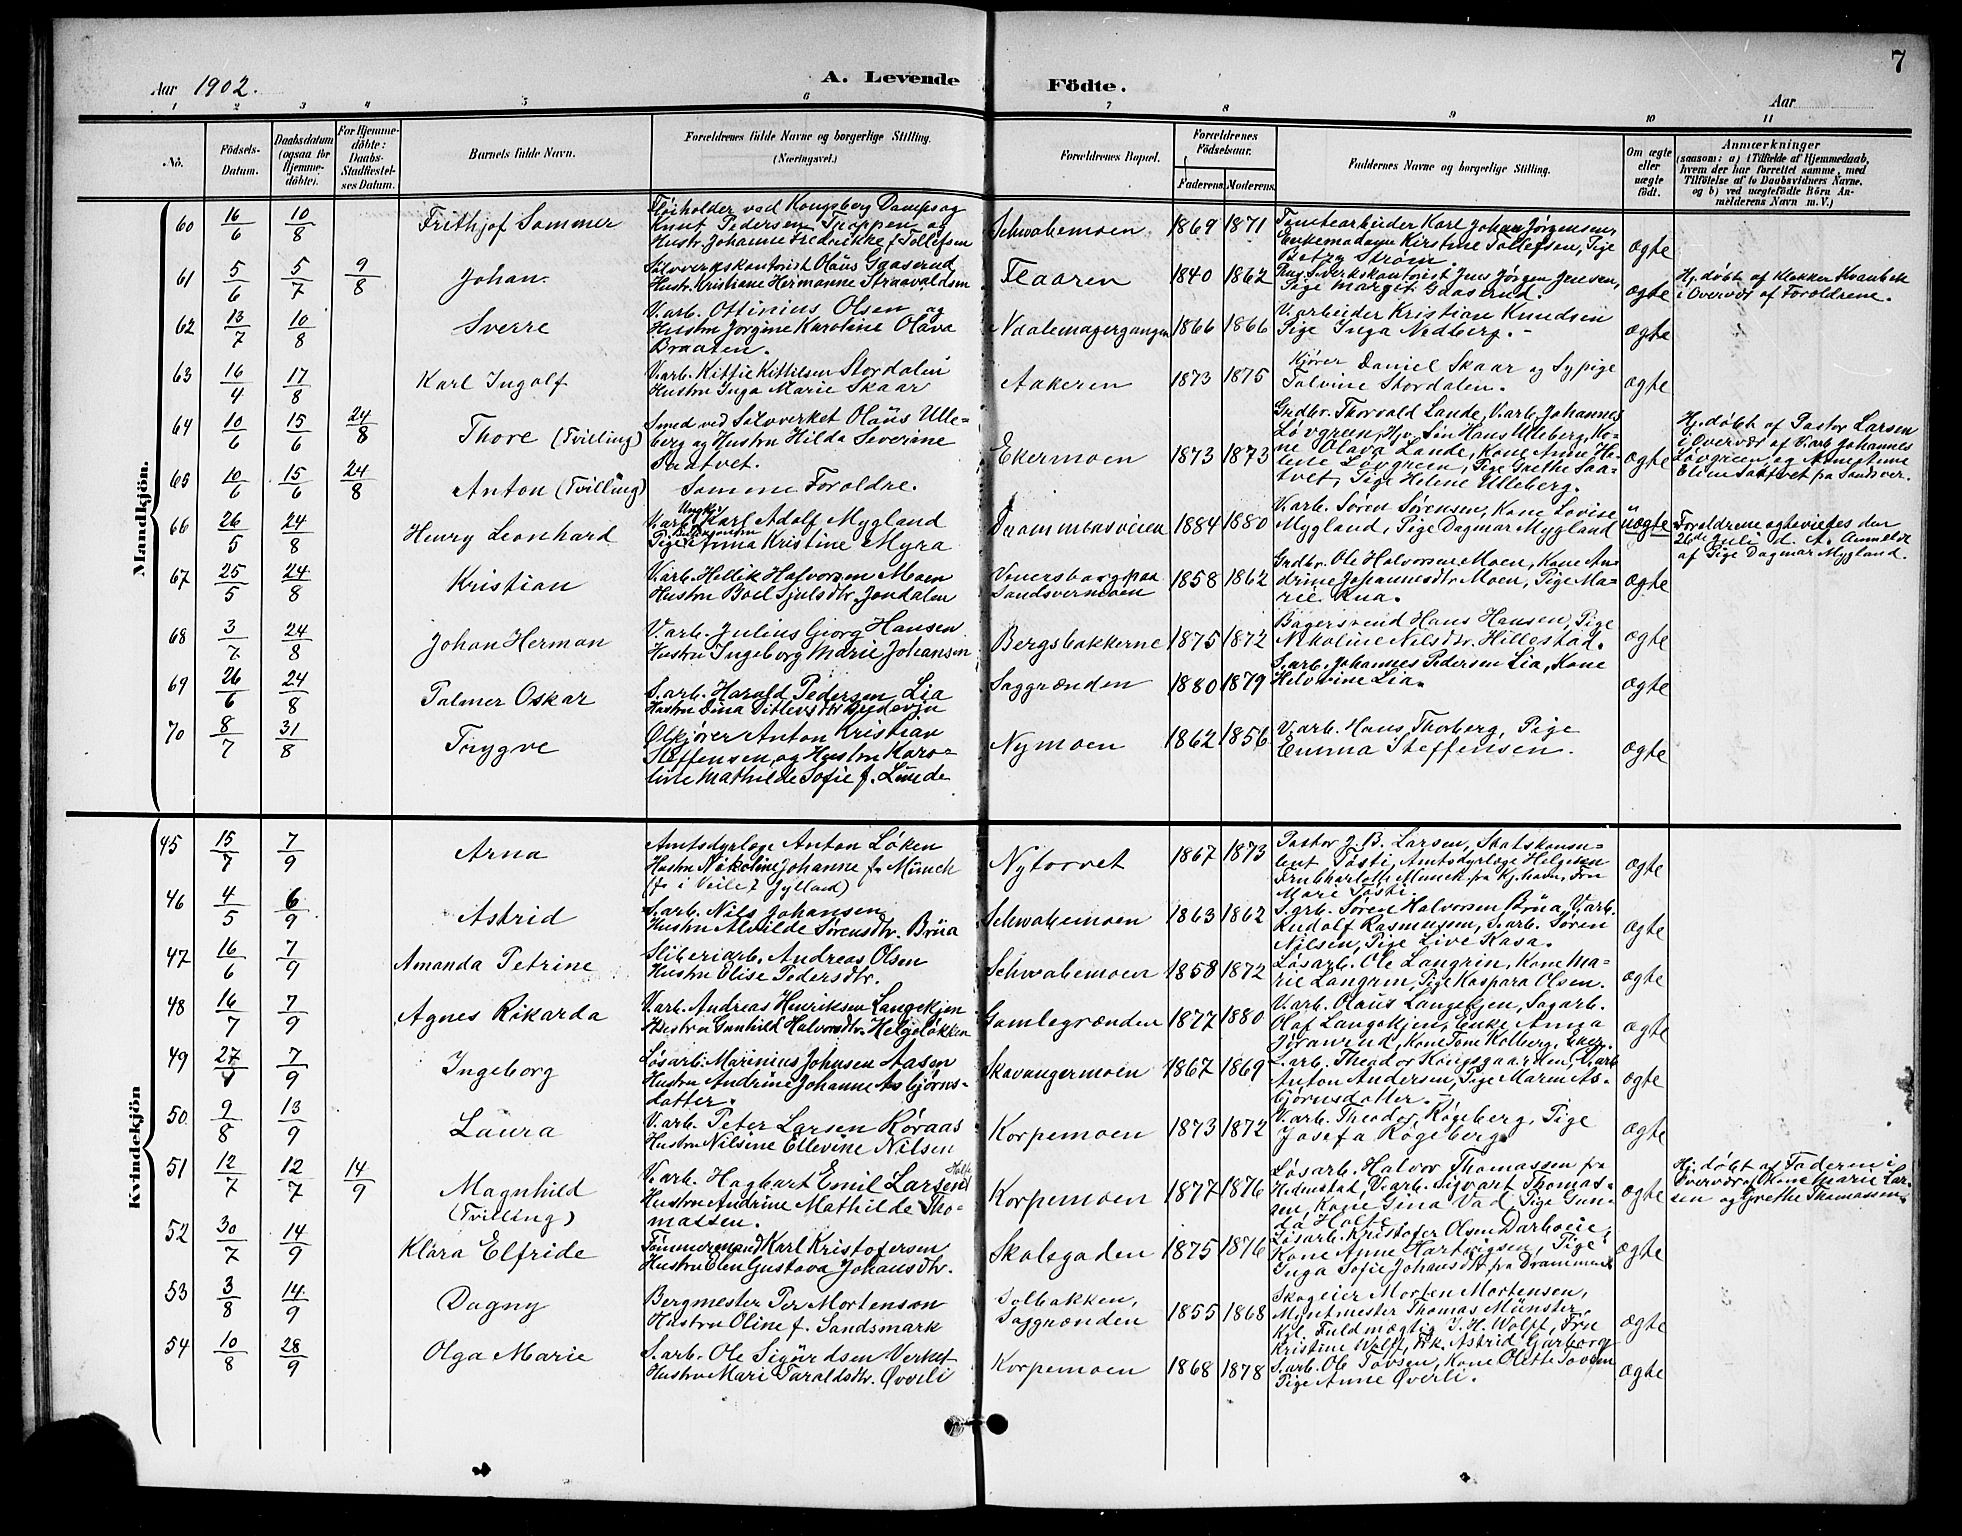 7
Aar 1902.
A. Levende Födte.
Aar
1 2 3 4 5 6 7 8 9 10 11
No.
Födsels-Datum.
Daabsdatum (ogsaa for Hjemmedöbte).
For Hjemmedöbte: Daabs-Stadfæstelses Datum.
Barnets fulde Navn.
Forældrenes fulde Navne og borgerlige Stilling. (Næringsvei.)
Forældrenes Bopæl.
Forældrenes Födselsaar.
Faderens. Moderens.
Faddernes Navne og borgerlige Stilling.
Om ægte eller uægte födt.
Anmærkninger
(saasom: a) i Tilfælde af Hjemmedaab, hvem der har forrettet samme, med Tilföielse af to Daabsvidners Navne, og b) ved uægtefödte Börn Anmelderens Navn m. V.)
Mandkjön.
60 16/6 10/8 Frithjof Sommer
Knut Pedersen Tråppen og
Hustr. Johanne Fredrikke f. Tollefsen
Schwabemoen 1869 1871
Tomtearbeider Karl Johan Jørgensen,
Enkemadam Kirstine Tollefsen, Pige
Betzy Strøm.
ægte
61 5/6 5/7 9/8 Johan.
Sølvverkskontorist Olaus Gaaserud
Hustr. Kristiane Hermanne Straavaldsen
Flaaren 1840 1862
Jens Jørgen Jensen,
Pige Margit Gaaserud.
ægte
Hj. døbt af Klokker Kvanbek
i Overvær af Forældrene.
62 13/7 10/8 Sverre
V. arb. Ottinius Olsen og
Hustru Jørgine Karoline Olava
Braaten.
Naalemagergangen 1866 1866
V. arbeider Kristian Knudsen
Pige Inga Nedberg. -
ægte
63 16/4 17/8 Karl Ingolf
V. arb. Kittil Kittilsen Stordalen
Hustru Inga Marie Skaar
Aakeren 1873 1875
Kjører Daniel Skaar og Sypige
Talvine Stordalen.
ægte
64 10/6 15/6 24/8 Thore (Tvilling)
Smed ved Sølvverket Olaus Ulle-
berg og Hustru Hilda Severine
Saatvet.
Ekermoen 1873 1873
Grdbr. Thorvald Lande, V. arb. Johannes
Løvgreen, Hjv. Søn Hans Ulleberg, Ko-
ne Olava Lande, Kone Anne He-
lene Løvgreen, Pige Grethe Saa-
tvet, Pige Helene Ulleberg.
ægte
Hj. døbt af Pastor Larsen
i Overvær af V. arb. Johannes
Løvgreen og Kone Anne
Elene Saatvet fra Sandsver.
65 10/6 15/6 24/8 Anton (Tvilling)
Samme Forældre.
66 26/5 24/8 Henry Leonhard
Ungk.
V. arb. Karl Adolf Mygland
Pige Anna Kristine Myra
Drammensveien 1884 1880
V. arb. Søren Sørensen, Kone Lovise
Mygland, Pige Dagmar Mygland
uægte
Forældrene ægtevies den
26de Juli d. A. Anmeldt
af Pige Dagmar Mygland.
67 25/5 24/8 Kristian
V. arb. Hellik Halvorsen Moen
Hustru Boel Sjulsdtr. Jondalen
Venersborg paa
Sandsvermoen 1858 1862
Grdbr. Ole Halvorsen Moen, Kone An-
drine Johannesdtr. Moen, Pige Ma-
rie Rua.
ægte
68 3/7 24/8 Johan Herman
V. arb. Julius Georg Hansen
Hustru Ingeborg Marie Johansen
Bergsbakkerne 1875 1872
Bagersvend Hans Hansen, Pige
Nikoline Nilsdtr. Hillestad.
ægte
69 26/6 24/8 Palmer Oskar
S. arb. Harald Pedersen Lia
Hustru Dina
Saggrænden 1880 1879
S. arb. Johannes Pedersen Lia, Kone
Helvine Lia.
ægte
70 8/7 31/8 Trygve
Ølkjører Anton Kristian
Steffensen, og Hustru Karo-
line Mathilde Sofie f. Lunde
Nymoen 1862 1856
V. arb. Hans Thorberg, Pige
Emma Steffensen.
ægte
Kvindekjön
45 15/7 7/9 Arna
Amtsdyrlæge Anton Løken
Hustru Nikoline Johanne f. Munch
(f. i Veile, Jylland)
Nytorvet 1867 1873
Pastor J. B. Larsen, Statskonsu-
lent Tosti, Amtsdyrlæge Helgesen
Fru Charlotte Munck fra Kj.havn, Fru
Marie Tosti.
ægte
46 4/5 6/9 Astrid
S. arb. Nils Johansen
Hustru Alvilde Sørensdtr. Brua
Schwabemoen 1863 1862
S. arb. Søren Halvorsen Brua, V. arb.
Rudolf Rasmussen, S. arb. Søren
Nilsen, Pige Live Kasa.
ægte
47 16/6 7/9 Amanda Petrine
Sliberiarb. Andreas Olsen
Hustru Elise Pedersdtr.
Schwabemoen 1858 1872
Løsarb. Ole Langrin, Kone Ma-
rie Langrin, Pige Kaspara Olsen.
ægte
48 16/7 7/9 Agnes Rikarda
V. arb. Andreas Henriksen Langekjen
Hustru Gunhild Halvorsdtr. Helgeløkken
Gamlegrænden 1877 1880
V. arb. Olaus Langekjen, Sagarb.
Olaf Langekjen, Enke Anna
Joranrud, Kone Tone Kolberg,
ægte
49 27/4 7/9 Ingeborg
Løsarb. Marinius Johnsen Aasen
Hustru Andrine Johanne Asbjørns-
datter.
Skavangermoen 1867 1869
L. arb. Theodor Kongsgaarden, V. arb
Anton Andersen, Pige Maren As-
bjørnsdatter. -
ægte
50 9/8 13/9 Laura
V. arb. Peter Larsen Røraas
Hustru Nilsine Ellevine Nilsen
Korpemoen 1873 1872
V. arb. Theodor Røgeberg, Pige
Josefa Røgeberg
ægte
51 12/7 12/7 14/9 Magnhild
(Tvilling)
V. arb. Hagbart Emil Larsen Holte
Hustru Andrine Mathilde Tho-
massen.
Korpemoen 1877 1876
Løsarb. Halvor Thomassen fra
Hedenstad, V. arb. Sigvart Thomas-
sen, Kone Gina Vad, Pige Gun-
da Holte
ægte
Hj. døbt af Faderen i
Overvær af Kone Marie Lar-
sen og Grethe Thomassen.
52 30/7 14/9 Klara Elfride
Tømmermand Karl Kristofersen
Hustru Elen Gustava Johansdtr.
Skolegaden 1875 1876
Løsarb. Kristofer Olsen Darboeie,
Kone Anne Hartvigsen, Pige
Inga Sofie Johansdtr fra Drammen
ægte
53 3/8 14/9 Dagny
Bergmester Per Mortenson
Hustru Oline f. Sandsmark
Solbakken,
Saggrænden 1855 1868
Skogeier Morten Mortensen,
Myntmester Thomas Münster,
Kgl. Fuldmægtig J. H. Wolff, Fru
Kristine Wolff, Frk. Astrid Garborg
ægte
54 10/8 28/9 Olga Marie
S. arb. Ole Sigurdsen Verket
Hustru Mari Taraldsdtr. Øverli
Korpemoen 1868 1878
S. arb. Ole Tovsen, Kone Olette Tovsen
Pige Anne Øverli.
ægte